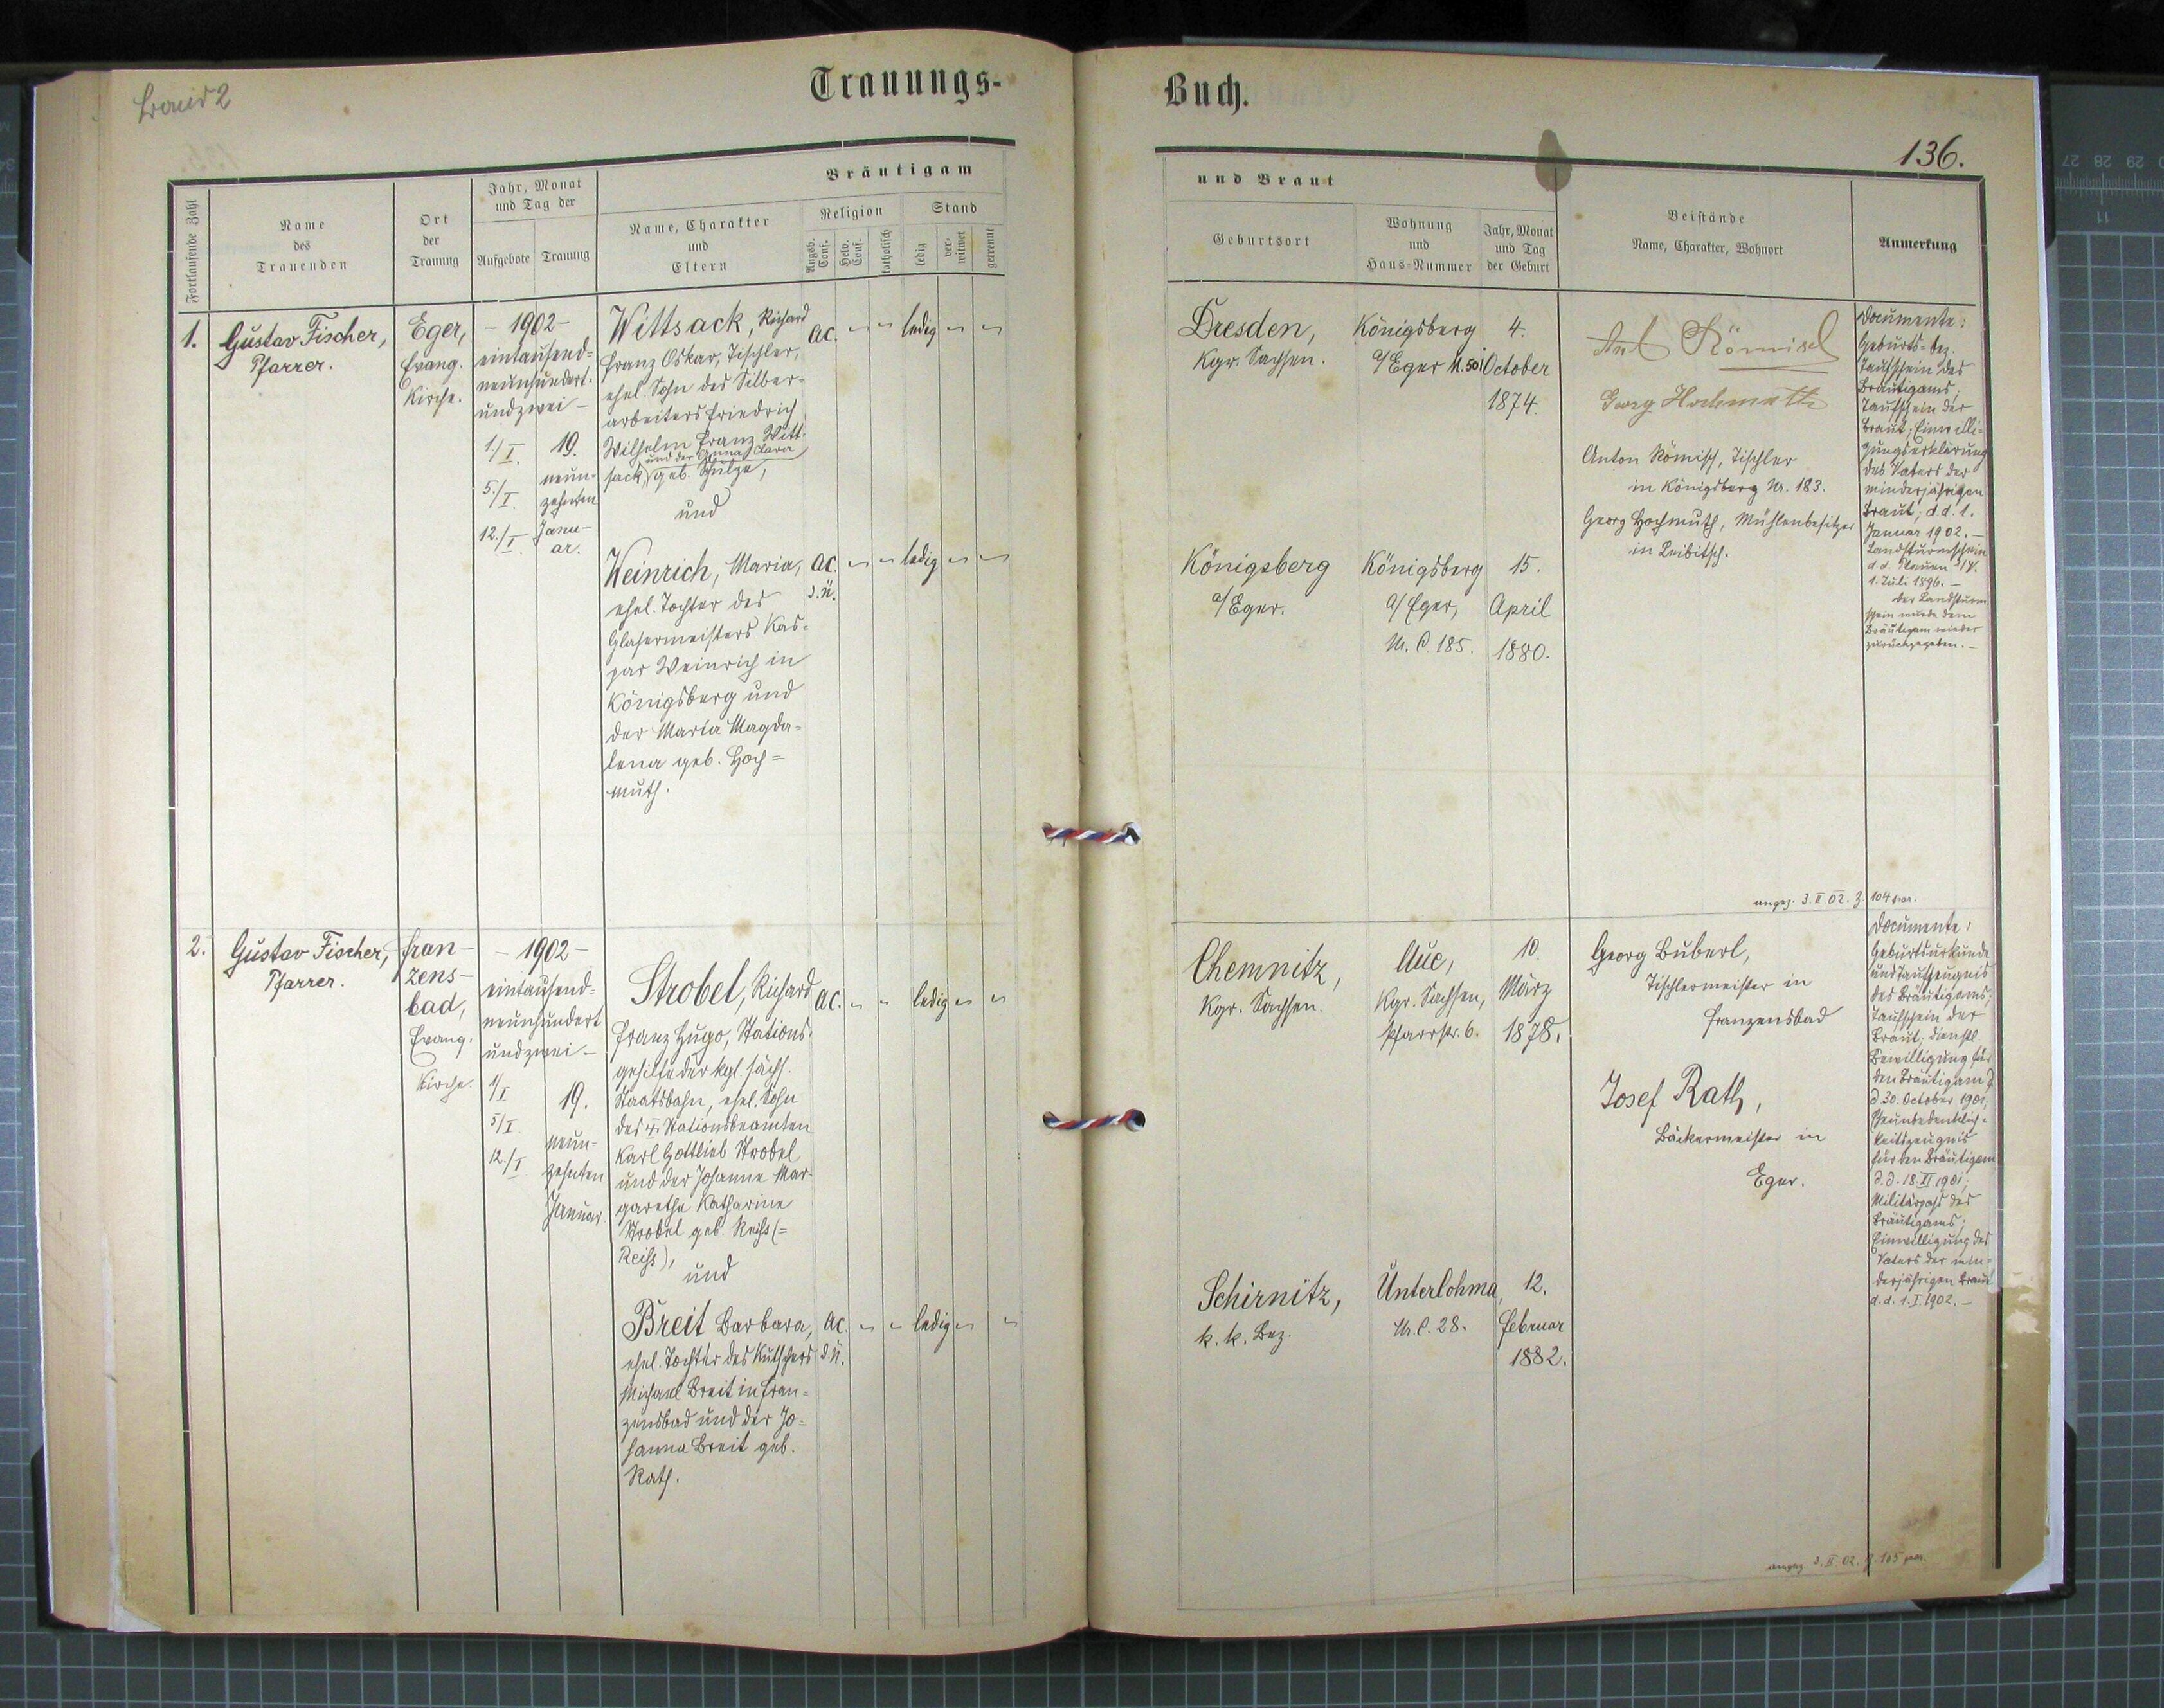 Band 2
Trauungs-
Buch.
136.
Fortlaufende Zahl
Name
des
Trauenden
Ort
der
Trauung
Jahr, Monat
und Tag der
Aufgebote
Trauung
Bräutigam
Name, Charakter
und
Eltern
Religion
Augsb. Conf.
Helv. Conf.
katholisch
Stand
ledig
verwitwet
getrennt
und Braut
Geburtsort
Wohnung
und
Haus-Nummer
Jahr, Monat
und Tag
der Geburt
Beistände
Name, Charakter, Wohnort
Anmerkung
1.
Gustav Fischer,
Pfarrer.
Eger,
Evang.
Kirche.
- 1902 -
eintausend=
neunhundert
undzwei -
1./I.
5./I.
12./I.
19.
neun-
zehnten
Janu-
ar.
Wittsack, Richard
Franz Oskar, Tischler,
ehel. Sohn des Silber-
arbeiters Friedrich
Wilhelm Franz Witt-
und der Anna Clara
sack, geb. Schulze,
und
AC. " " ledig " "
Weinrich, Maria,
ehel. Tochter des
Glasermeisters Kas-
par Weinrich in
Königsberg und
der Maria Magda-
lena geb. Hoch=
muth.
AC. " " ledig " "
s. ü.
Dresden,
Kgr. Sachsen.
Königsberg
a/Eger N. 50
4.
October
1874.
Königsberg
a/Eger.
Königsberg
a/Eger,
N. C. 185.
15.
April
1880.
Ant Römisch
Georg Hochmuth
Anton Römisch, Tischler
in Königsberg Nr. 183.
Georg Hochmuth, Mühlenbesitzer
in Leibitsch.
Documente:
Geburts- bez.
Taufschein des
Bräutigams;
Taufschein der
Braut; Einwilli=
gungserklärung
des Vaters der
minderjährigen
Braut, d.d. 1.
Januar 1902. -
Landsturmschein
d. d. Plauen
1. Juli 1896. -
Der Landsturm
schein wurde dem
Bräutigam wieder
zurückgegeben. -
angez. 3. II. 02. Z. 104 par.
2.
Gustav Fischer,
Pfarrer.
Fran-
zens-
bad,
Evang.
Kirche.
- 1902 -
eintausend=
neunhundert
undzwei -
1/I
5/I
12./I
19.
neun=
zehnten
Januar.
Strobel, Richard
Franz Hugo, Stations-
gehilfe der kgl. sächs.
Staatsbahn, ehel. Sohn
des Stationsbeamten
Karl Gottlieb Strobel
und der Johanne Mar-
garethe Katharine
Strobel geb. Reiß (=
Reiss),
und
AC. " " ledig " "
Breit Barbara,
ehel. Tochter des Kutschers
Michael Breit in Fran=
zensbad und der Jo=
hanna Breit geb.
Rath.
AC. " " ledig " "
s. ü.
Chemnitz,
Kgr. Sachsen.
Aue,
Kgr. Sachsen,
Pfarrstr. 6.
10.
März
1878.
Schirnitz,
k. k. Bez.
Unterlohma,
Nr. C. 28.
12.
Februar
1882.
Georg Buberl,
Tischlermeister in
Franzensbad
Josef Rath,
Bäckermeister in
Eger.
Documente:
Geburtsurkunde
und Taufzeugnis
des Bräutigams;
Taufschein der
Braut; dienstl.
Bewilligung für
den Bräutigam d.
d 30. October 1901,
Eheunbedenklich=
keitszeugnis
für den Bräutigam
d. d. 18. II 1901;
Militärpaß des
Bräutigams;
Einwilligung des
Vaters der min-
derjährigen Braut
d. d. 1. I. 1902. -
angez. 3. II. 02. Z. 105 par.